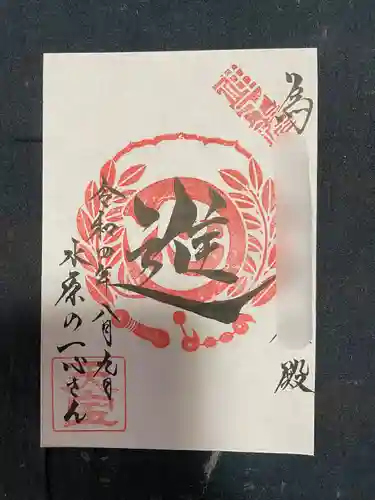 為
殿
進
令和四年八月九日
水原の一心さん